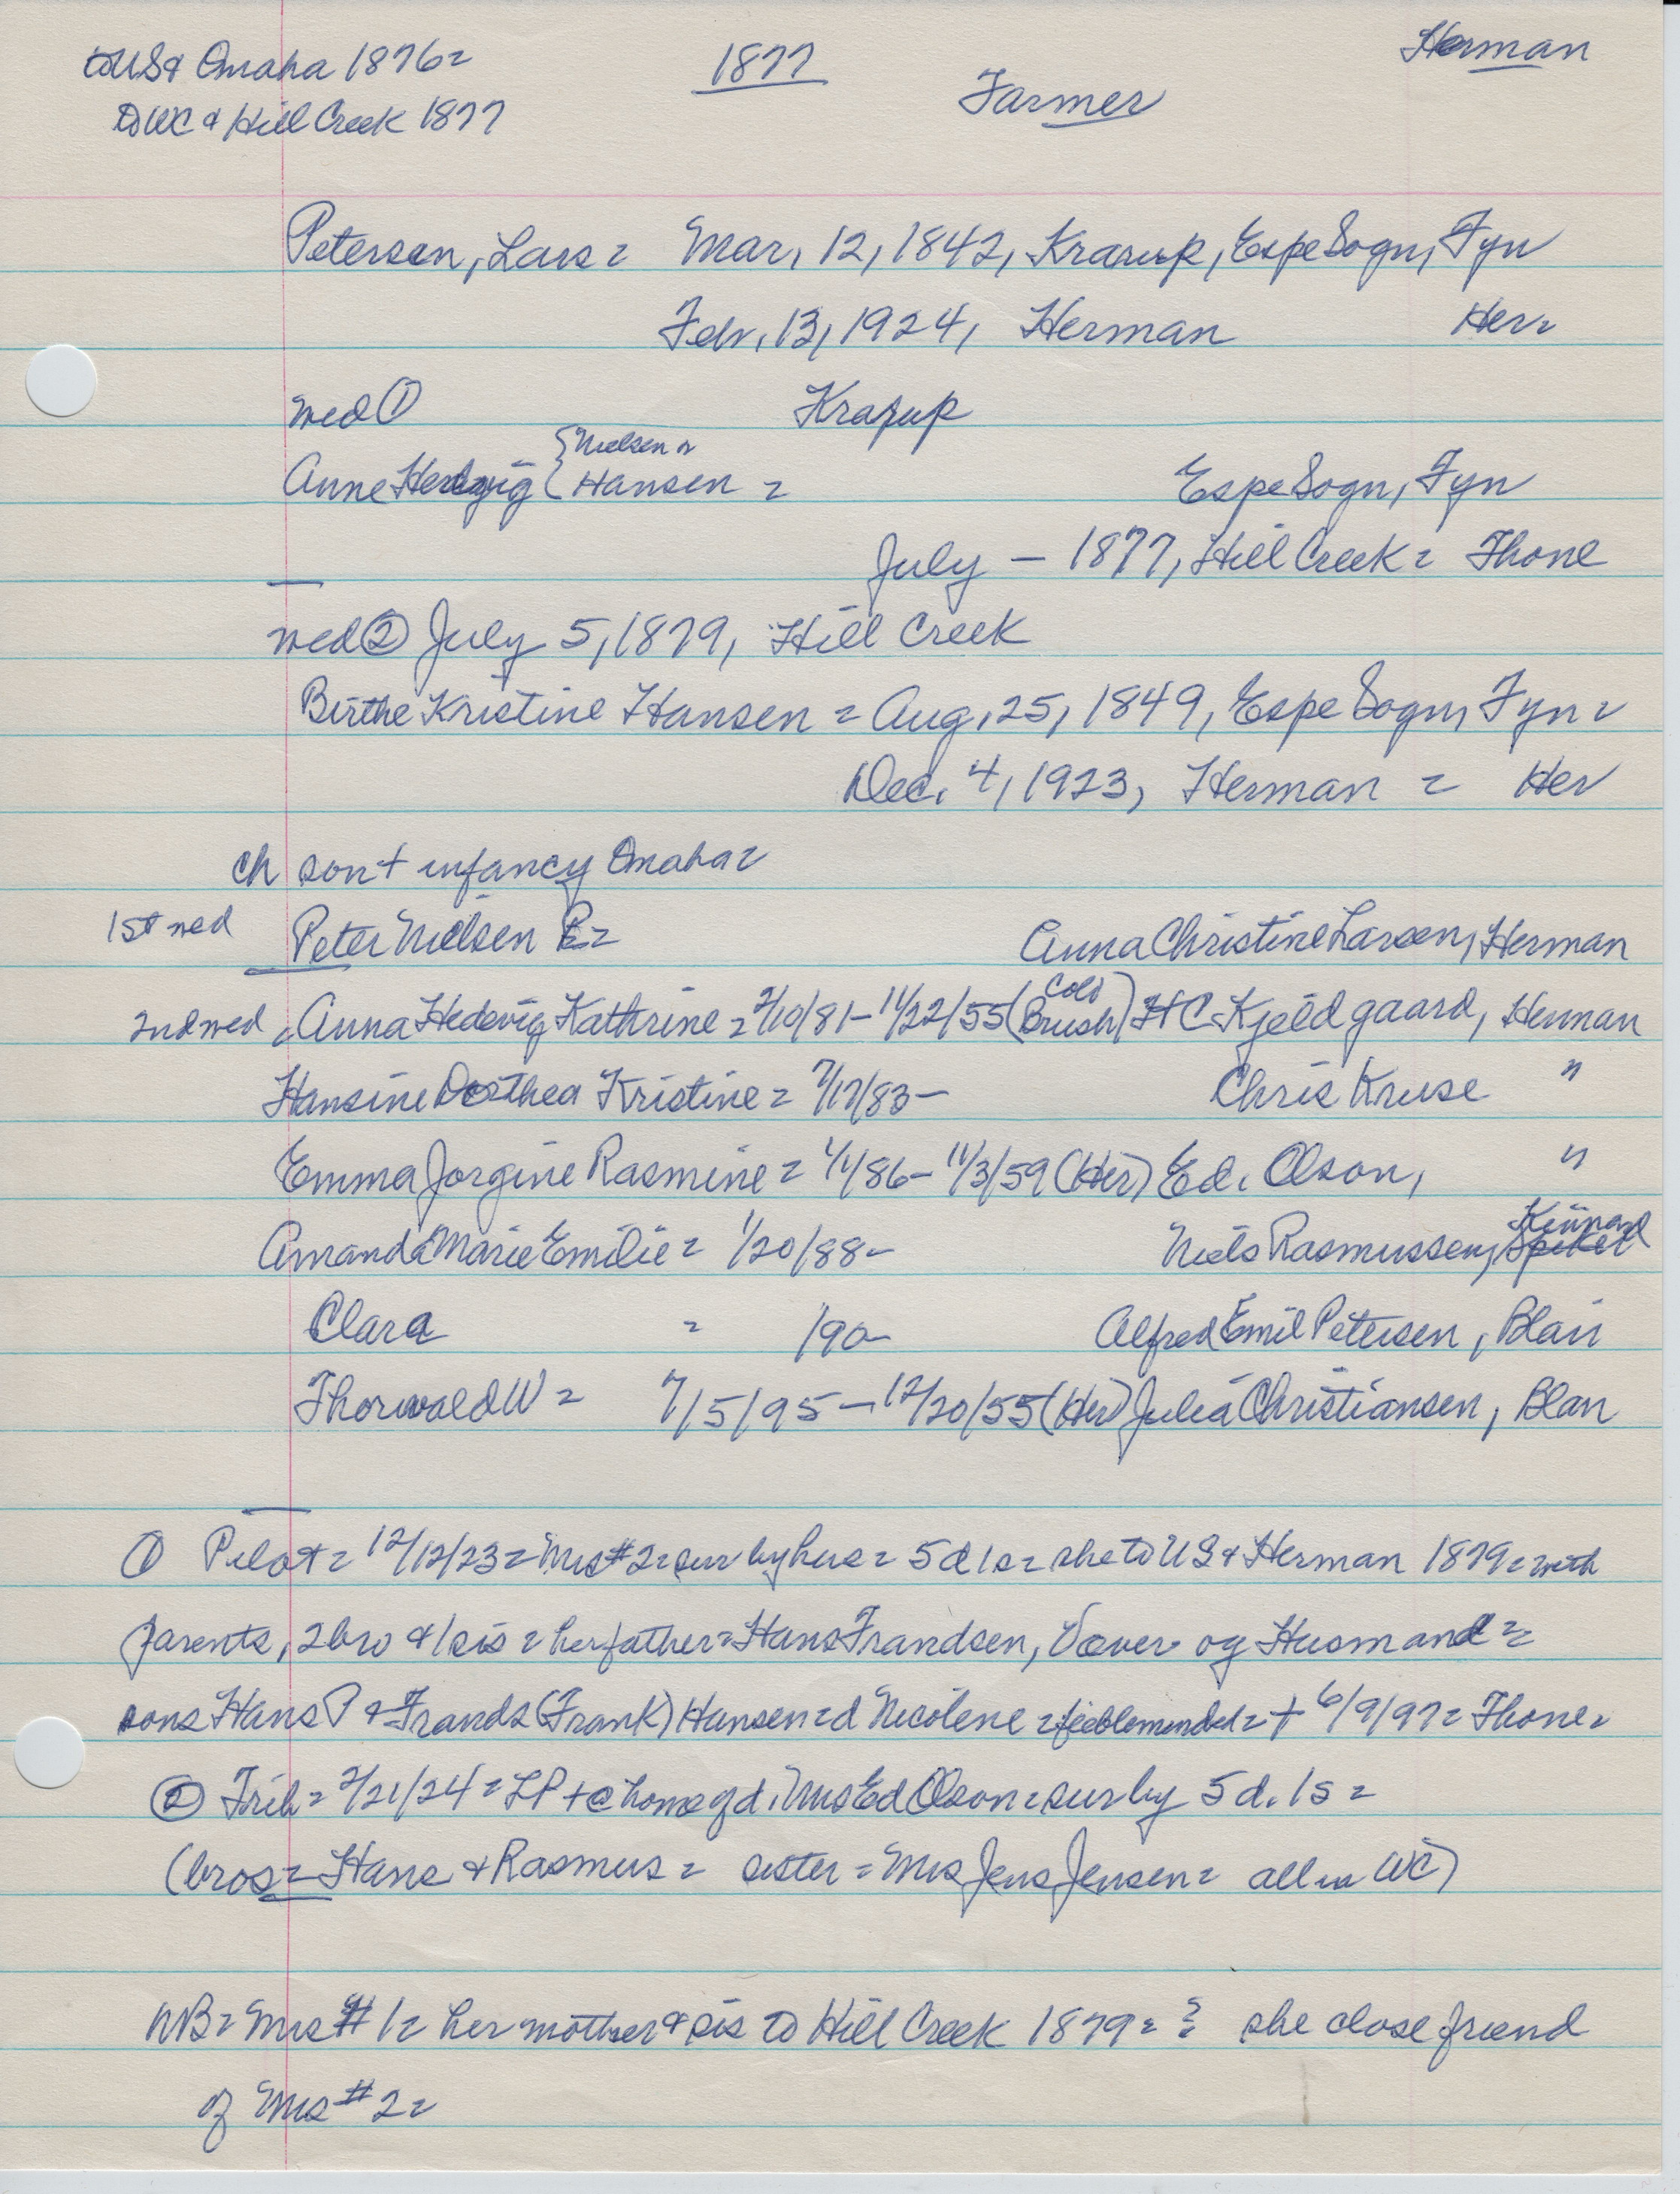 to US & Omaha 1876= 1877 Herman
to WC & Hill Creek 1877 Farmer
Petersen, Lars = Mar, 12, 1842, Krarup, Espe Sogn, Fyn
Febr, 13, 1924, Herman Her=
wed ① Krarup
Anne Hedvig { Nielsen or
Hansen = Espe Sogn, Fyn
July — 1877, Hill Creek = Thone
wed ② July 5, 1879, Hill Creek
Birthe Kristine Hansen = Aug, 25, 1849, Espe Sogn, Fyn =
Dec. 4, 1923, Herman = Her
ch son + infancy Omaha =
1st wed Peter Nielsen P= Anna Christine Larsen, Herman
2nd wed, Anna Hedevig Kathrine = 2/10/81 - 11/22/55 (Brush Colo) HC Kjeldgaard, Herman
Hansine Dorthea Kristine = 7/17/83 - Chris Kruse "
Emma Jorgine Rasmine = 1/1/86 - 11/3/59 (Her) Ed. Olson, "
Amanda Marie Emilie = 1/20/88 - Niels Rasmussen, Kennard
Clara = 190- Alfred Emil Petersen, Blair
Thorwald W = 7/5/95 - 12/20/55 (Her) Julia Christiansen, Blair
① Pilot = 12/12/23 = Mrs #2 = sur by hus = 5d 1s = she to US & Herman 1879 = with
parents, 2 bro & 1 sis = her father = Hans Frandsen, Væver og Husmand =
sons Hans P & Frands (Frank) Hansen = d Nicolene = feebleminded = + 6/9/97 = Thone =
② Trib = 2/21/24 = LP + @ home of d. Mrs Ed Olson = sur by 5 d. 1s =
(bros = Hans & Rasmus = sister = Mrs Jens Jensen = all in WC)
NB = Mrs #1 = her mother & sis to Hill Creek 1879 = ? she close friend
of Mrs #2 =